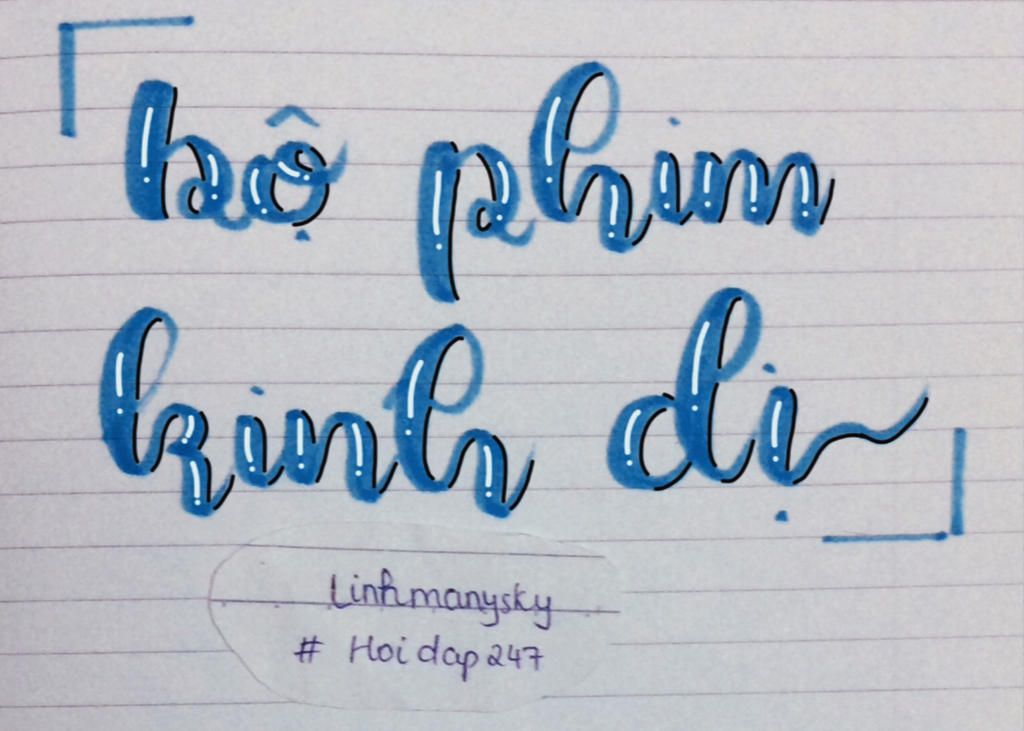 bộ phim
kinh dị
Linhmanysky
# Hoidap247